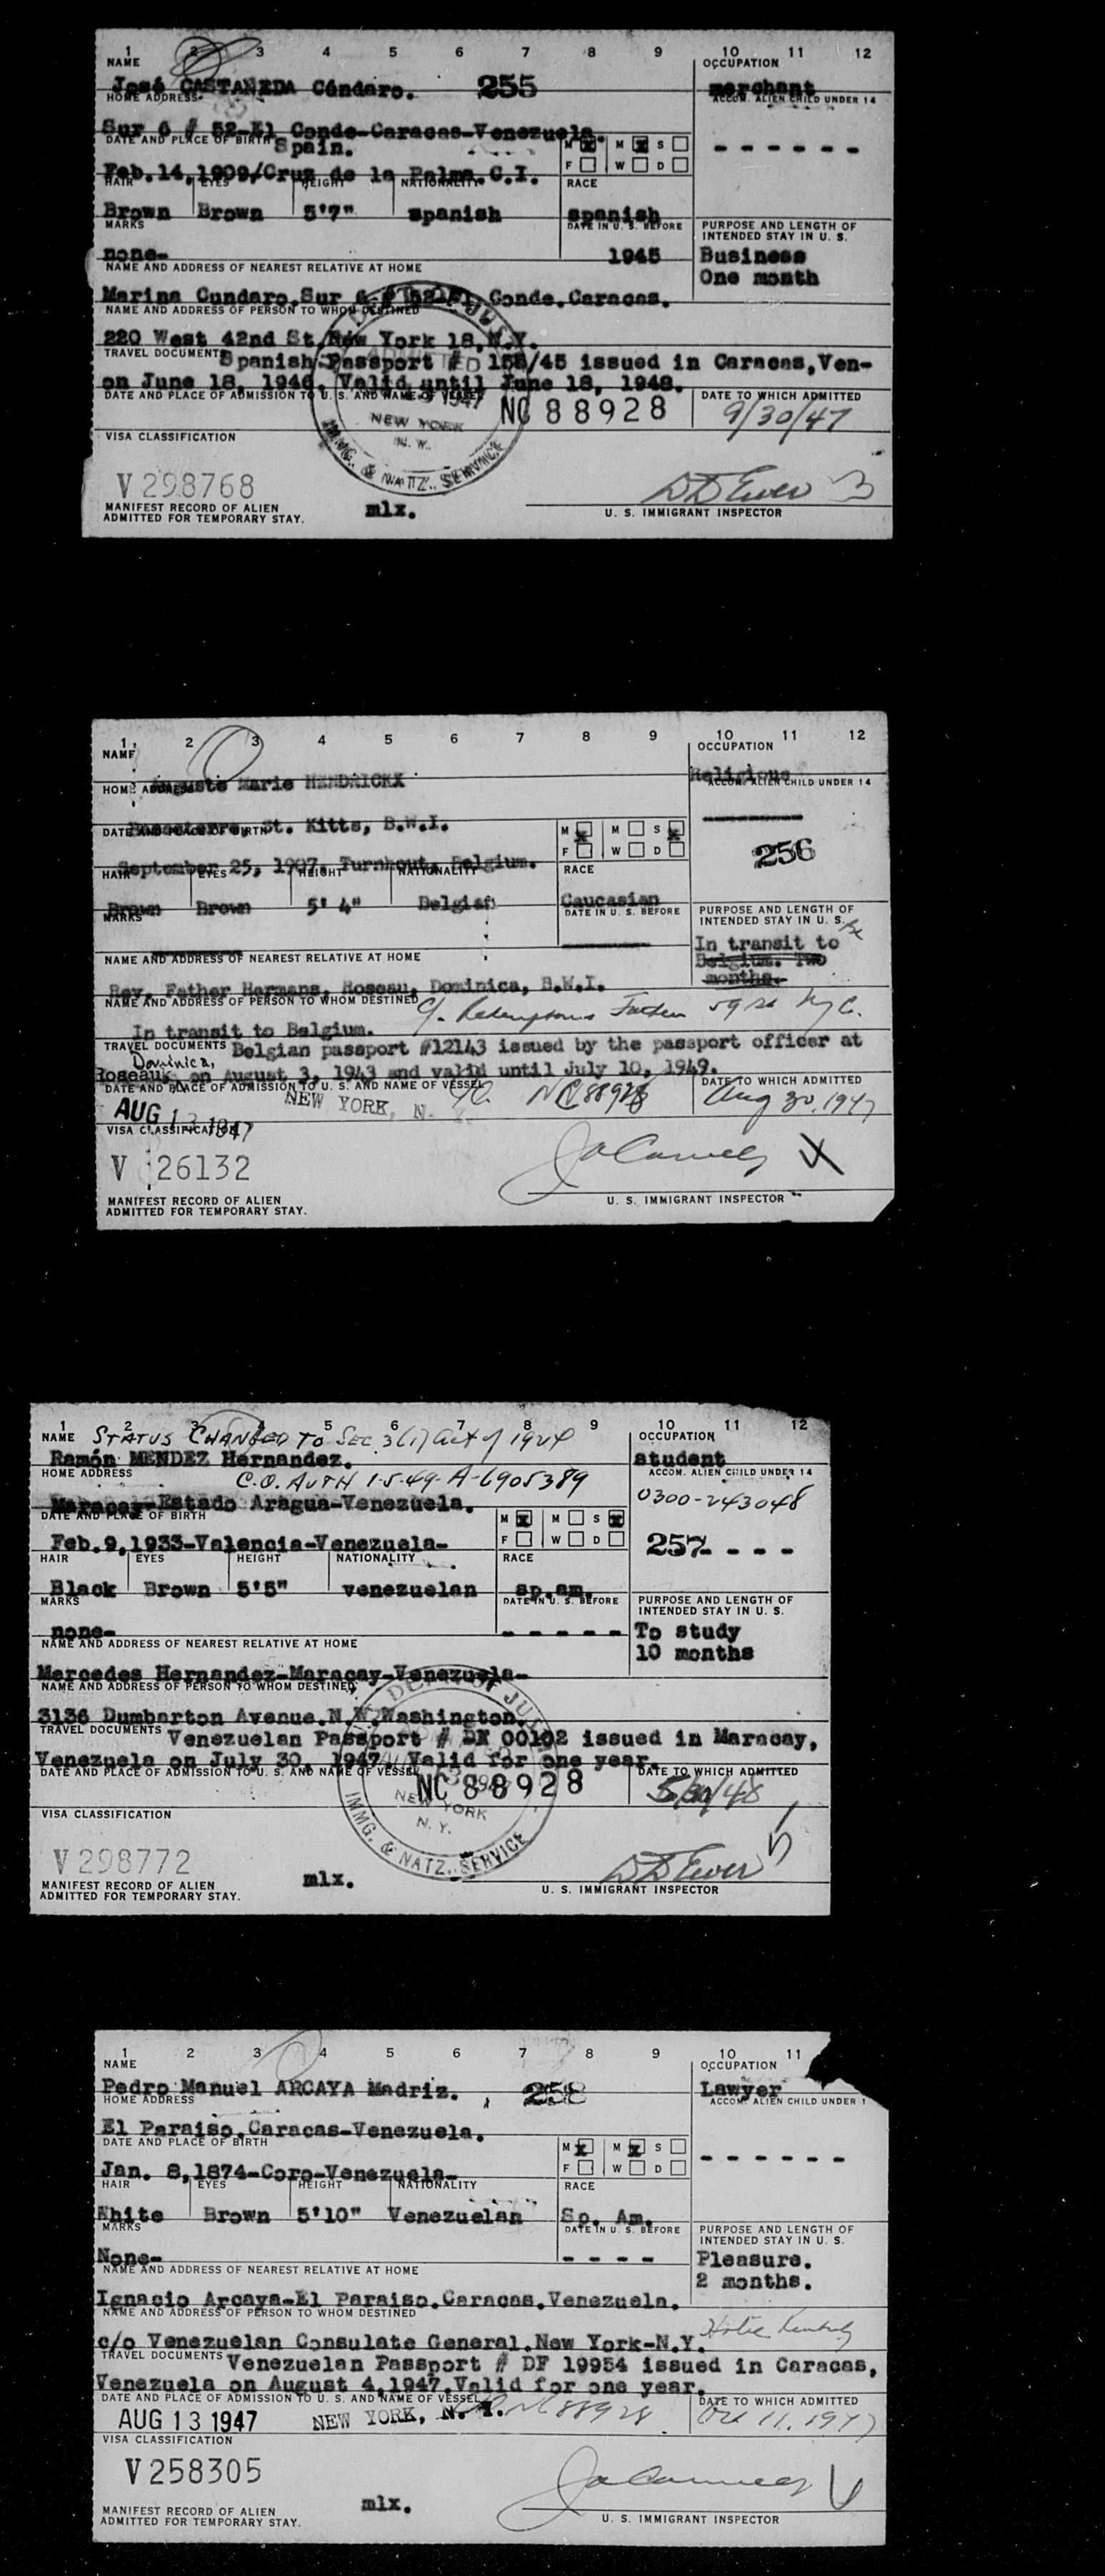 1 2 3 4 5 6 7 8 9 10 11 12
NAME
OCCUPATION
José CASTAÑEDA Cándaro. 255
merchant
HOME ADDRESS
ACCOM. ALIEN CHILD UNDER 14
Sur 6 # 52-El Conde-Caracas-Venezuela.
DATE AND PLACE OF BIRTH Spain.
M x F M x W S D
- - - - - -
Feb.14,1909/Cruz de la Palma.C.I.
HAIR EYES HEIGHT NATIONALITY RACE
Brown Brown 5'7" spanish spanish
MARKS
DATE IN U. S. BEFORE
PURPOSE AND LENGTH OF INTENDED STAY IN U. S.
none- 1945
Business
One month
NAME AND ADDRESS OF NEAREST RELATIVE AT HOME
Marina Cundaro.Sur 6 # 52-El Conde.Caracas.
NAME AND ADDRESS OF PERSON TO WHOM DESTINED
220 West 42nd St.New York 18,N.Y.
TRAVEL DOCUMENTS Spanish Passport # 158/45 issued in Caracas,Ven-
on June 18, 1946. Valid until June 18, 1948.
DATE AND PLACE OF ADMISSION TO U. S. AND NAME OF VESSEL
DATE TO WHICH ADMITTED
NC 88928
9/30/47
NEW YORK
IMMG. & NATZ. SERVICE
VISA CLASSIFICATION
V 298768
MANIFEST RECORD OF ALIEN
ADMITTED FOR TEMPORARY STAY.
mlx.
U. S. IMMIGRANT INSPECTOR
1 2 3 4 5 6 7 8 9 10 11 12
NAME
OCCUPATION
Auguste Marie HENDRICKX
Religious
HOME ADDRESS
ACCOM. ALIEN CHILD UNDER 14
Basseterre, St. Kitts, B.W.I.
DATE AND PLACE OF BIRTH
M x F M W S x D
256
September 25, 1907, Turnhout, Belgium.
HAIR EYES HEIGHT NATIONALITY RACE
Brown Brown 5' 4" Belgian Caucasian
MARKS
DATE IN U. S. BEFORE
PURPOSE AND LENGTH OF INTENDED STAY IN U. S.
In transit to
Belgium. Two
months.
NAME AND ADDRESS OF NEAREST RELATIVE AT HOME
Rev. Father Hermans, Roseau, Dominica, B.W.I.
NAME AND ADDRESS OF PERSON TO WHOM DESTINED
In transit to Belgium.
TRAVEL DOCUMENTS Belgian passport #12143 issued by the passport officer at
Dominica,
Roseau, on August 3, 1943 and valid until July 10, 1949.
DATE AND PLACE OF ADMISSION TO U. S. AND NAME OF VESSEL
DATE TO WHICH ADMITTED
AUG 13 1947 NEW YORK, N. Y. NC 88928
Aug 30, 1947
VISA CLASSIFICATION
V 26132
MANIFEST RECORD OF ALIEN
ADMITTED FOR TEMPORARY STAY.
U. S. IMMIGRANT INSPECTOR
1 2 3 4 5 6 7 8 9 10 11 12
NAME STATUS CHANGED TO SEC. 3(1) Act of 1924
OCCUPATION
Ramón MENDEZ Hernandez.
student
HOME ADDRESS C.O. AUTH 1-5-49-A-6905389
ACCOM. ALIEN CHILD UNDER 14
0300-243048
Maracay-Estado Aragua-Venezuela.
DATE AND PLACE OF BIRTH
M x F M W S x D
257 - - - -
Feb.9,1933-Valencia-Venezuela-
HAIR EYES HEIGHT NATIONALITY RACE
Black Brown 5'5" venezuelan sp.am.
MARKS
DATE IN U. S. BEFORE
PURPOSE AND LENGTH OF INTENDED STAY IN U. S.
none- - - - - -
To study
10 months
NAME AND ADDRESS OF NEAREST RELATIVE AT HOME
Mercedes Hernandez-Maracay-Venezuela-
NAME AND ADDRESS OF PERSON TO WHOM DESTINED
3136 Dumbarton Avenue.N.W.Washington.
TRAVEL DOCUMENTS Venezuelan Passport # DN 00102 issued in Maracay,
Venezuela on July 30, 1947. Valid for one year.
DATE AND PLACE OF ADMISSION TO U. S. AND NAME OF VESSEL
DATE TO WHICH ADMITTED
NC 88928
5/30/48
NEW YORK
N. Y.
IMMG. & NATZ. SERVICE
VISA CLASSIFICATION
V 298772
MANIFEST RECORD OF ALIEN
ADMITTED FOR TEMPORARY STAY.
mlx.
U. S. IMMIGRANT INSPECTOR
1 2 3 4 5 6 7 8 9 10 11
NAME
OCCUPATION
Pedro Manuel ARCAYA Madriz. 258
Lawyer
HOME ADDRESS
ACCOM. ALIEN CHILD UNDER 1
El Paraiso.Caracas-Venezuela.
DATE AND PLACE OF BIRTH
M x F M x W S D
- - - - - -
Jan. 8,1874-Coro-Venezuela-
HAIR EYES HEIGHT NATIONALITY RACE
White Brown 5'10" Venezuelan Sp. Am.
MARKS
DATE IN U. S. BEFORE
PURPOSE AND LENGTH OF INTENDED STAY IN U. S.
None- - - - -
Pleasure.
2 months.
NAME AND ADDRESS OF NEAREST RELATIVE AT HOME
Ignacio Arcaya-El Paraiso.Caracas.Venezuela.
NAME AND ADDRESS OF PERSON TO WHOM DESTINED
c/o Venezuelan Consulate General.New York-N.Y.
TRAVEL DOCUMENTS Venezuelan Passport # DF 19954 issued in Caracas,
Venezuela on August 4,1947.Valid for one year.
DATE AND PLACE OF ADMISSION TO U. S. AND NAME OF VESSEL
DATE TO WHICH ADMITTED
AUG 13 1947 NEW YORK, N. Y. NC 88928
Oct 11, 1947
VISA CLASSIFICATION
V 258305
mlx.
MANIFEST RECORD OF ALIEN
ADMITTED FOR TEMPORARY STAY.
U. S. IMMIGRANT INSPECTOR